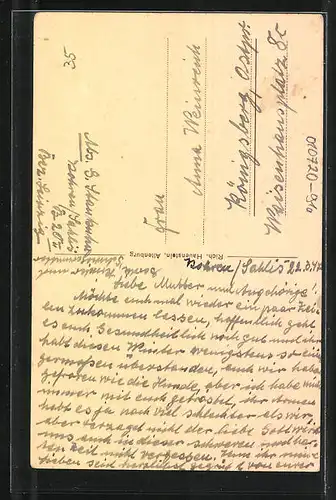 35
Frau
Anna Weinreich
Königsberg Ostpr.
Waisenhausplatz 8c
010720-96
Rich. Hauenstein, Altenburg
Kohren/Sahlis 22.
Liebe Mutter und Angehörige!
Möchte euch mal wieder ein paar Zeilen
zukommen lassen, hoffentlich geht
es euch Gesundheitlich noch gut und ihr
habt diesen Winter wenigstens so eini
germaßen überstanden, auch wir haben
gefroren wie die Hunde, aber ich habe mich
immer mit euch getröstet, ihr Armen
habt es ja noch viel schlechter als wir,
aber verzagt nicht der liebe Gott wird
uns auch in dieser schweren und har
ten Zeit nicht vergessen.
Lieben seid herzlichst gegrüßt von eurer